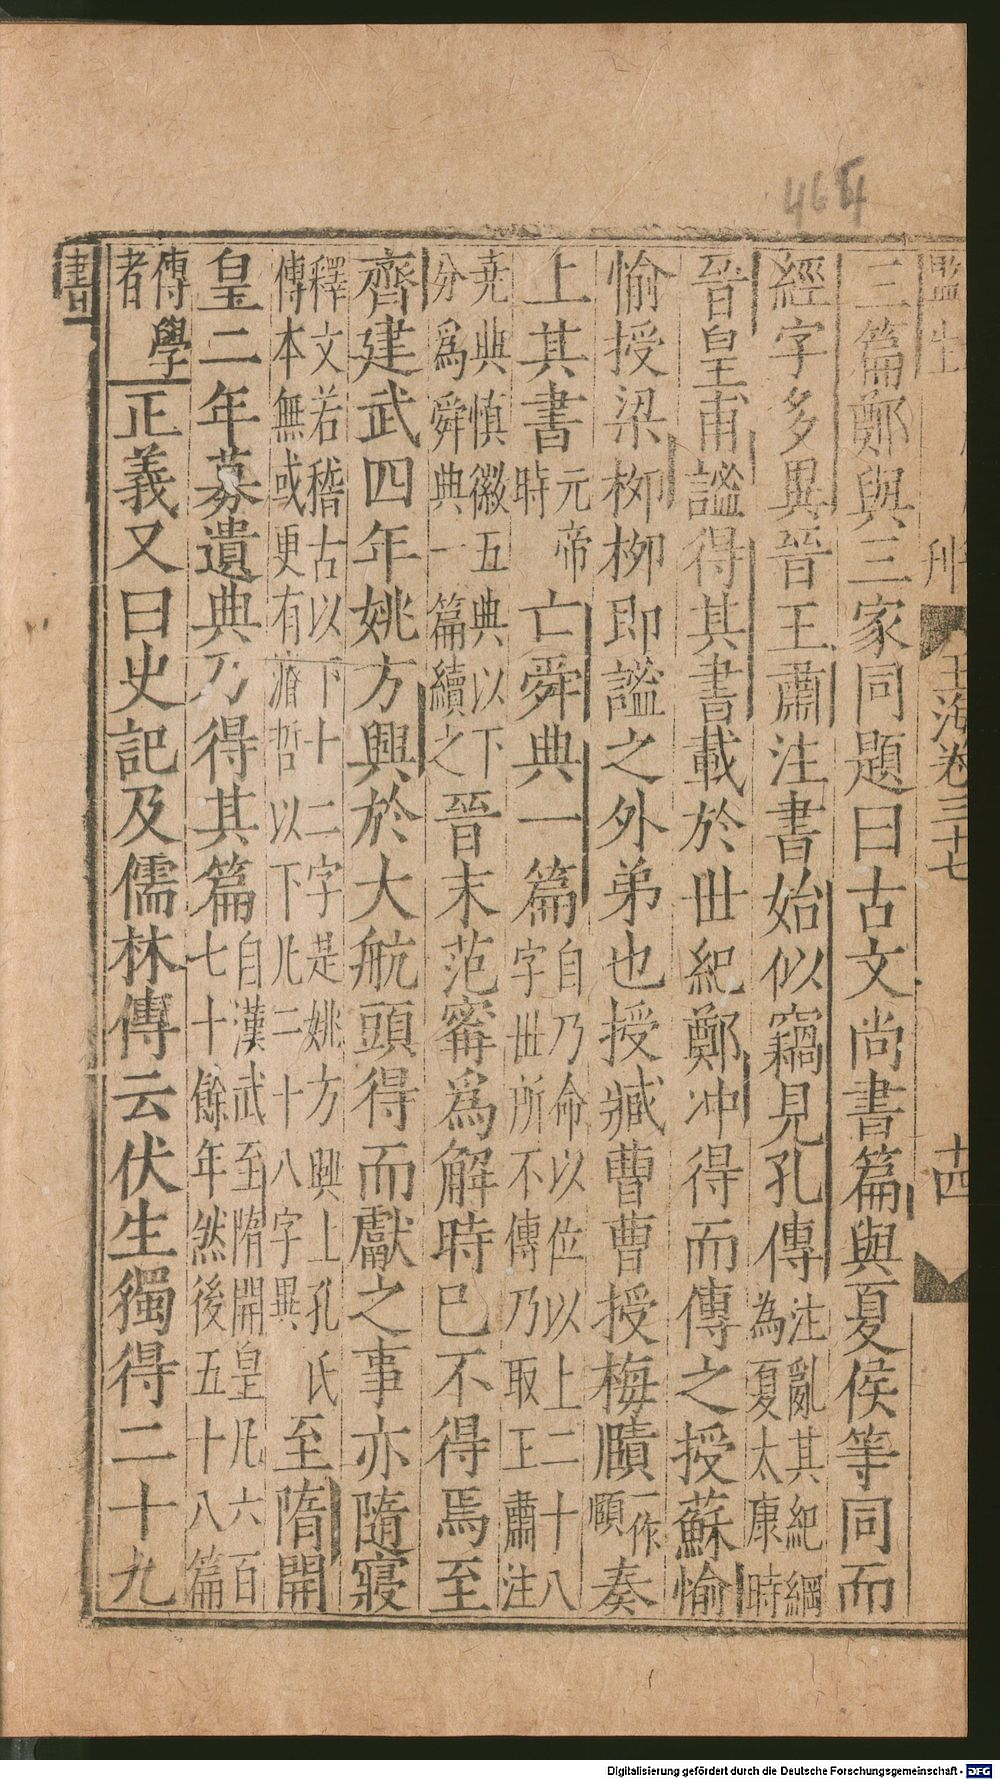 464
玉海卷三十七
十四
三篇鄭與三家同題曰古文尚書篇與夏侯等同而
經字多異晉王肅注書始似竊見孔傳注亂其紀綱為夏太康時
晉皇甫謐得其書載於世紀鄭冲得而傳之授蘇愉
愉授梁柳柳即謐之外弟也授臧曹曹授梅賾一作頤奏
上其書元帝時亡舜典一篇自乃命以位以上二十八字世所不傳乃取王肅注
堯典慎徽五典以下分為舜典一篇續之晉末范甯為解時已不得焉至
齊建武四年姚方興於大航頭得而獻之事亦隨寢
釋文若稽古以下十二字是姚方興上孔氏傳本無或更有濬哲以下凡二十八字異至隋開
皇二年募遺典乃得其篇自漢武至隋開皇凡六百七十餘年然後五十八篇
傳學者正義又曰史記及儒林傳云伏生獨得二十九
書
Digitalisierung gefördert durch die Deutsche Forschungsgemeinschaft - DFG